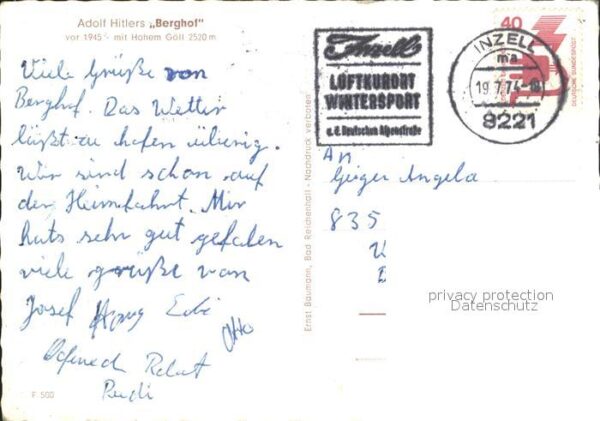 Adolf Hitlers „Berghof"
vor 1945 - mit Hohem Göll 2520 m
Viele Grüße von
Berghof. Das Wetter
läßt zu hofen übrig.
Wir sind schon auf
der Heimfahrt. Mir
hats sehr gut gefalen
viele grüße von
Josef
Otto
Rudi
F. 500
Ernst Baumann, Bad Reichenhall - Nachdruck verboten
Inzell
LUFTKURORT
WINTERSPORT
a. d. Deutschen Alpenstraße
INZELL
ma
19.7.74
8221
40
DEUTSCHE BUNDESPOST
An
Geiger Angela
835
privacy protection
Datenschutz